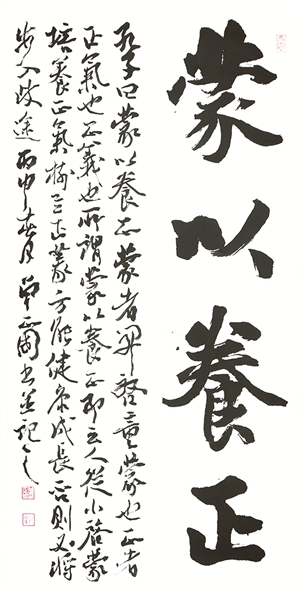 蒙以養正
孔子曰蒙以養正蒙者開啓童蒙也正者
正氣也正義也所謂蒙以養正即人從小啓蒙
培養正氣蒙方能健康成長否則必將
步入歧途丙申春月國書並記之